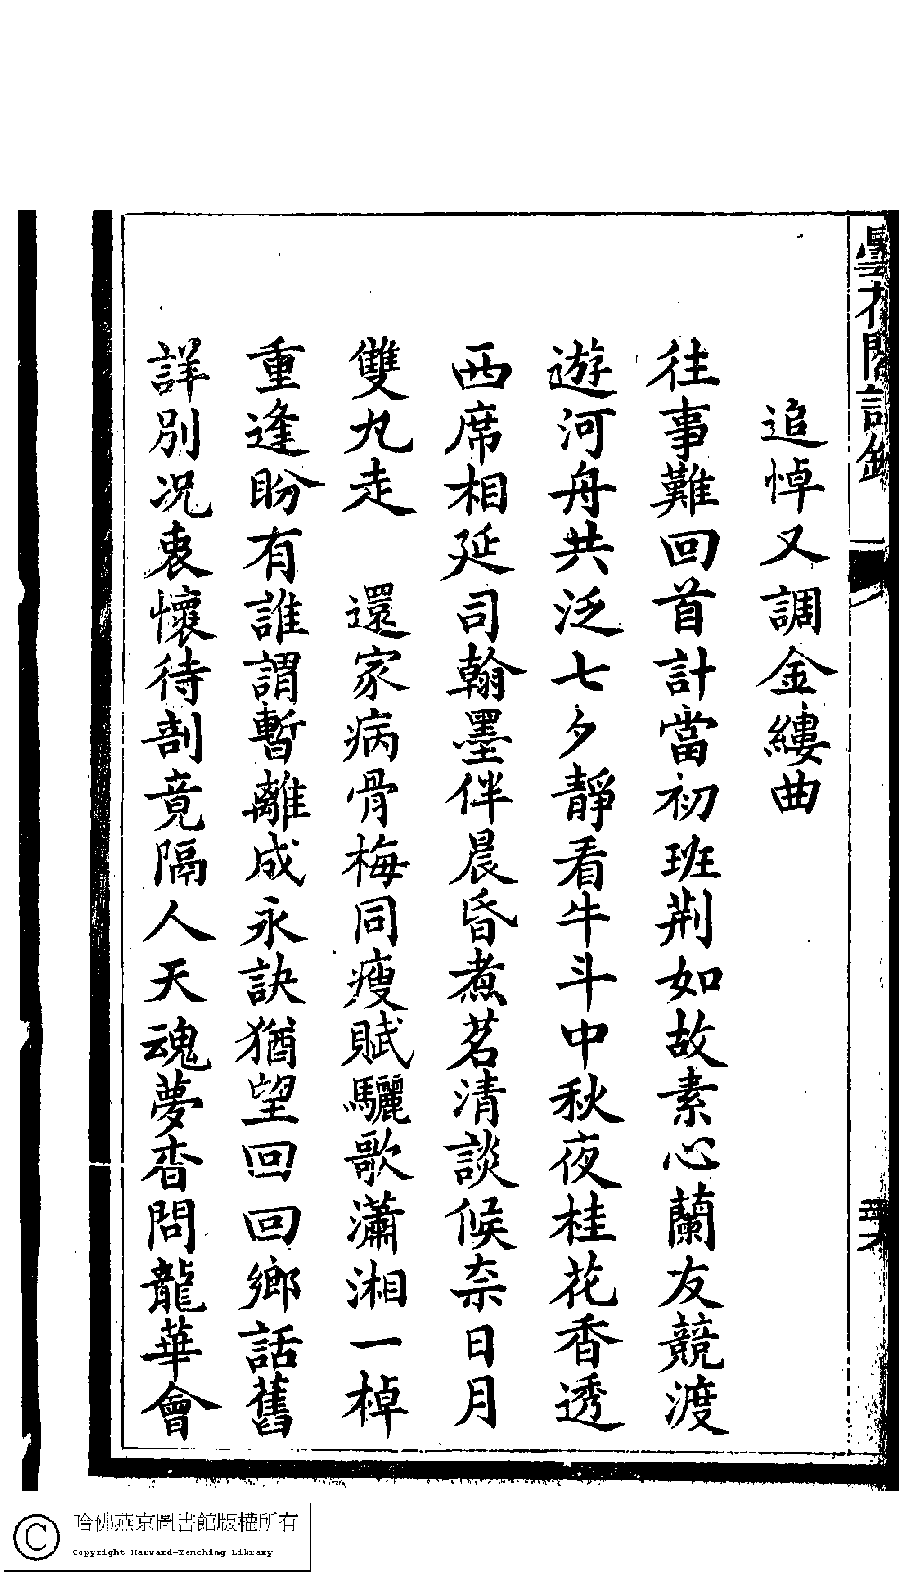 曇花閣詩鈔
追悼又調金縷曲
往事難回首計當初班荆如故素心蘭友競渡
遊河舟共泛七夕靜看牛斗中秋夜桂花香透
西席相延司翰墨伴晨昏煮茗清談候柰日月
雙丸走　還家病骨梅同瘦賦驪歌瀟湘一棹
重逢盼有誰謂暫離成永訣猶望回回鄉話舊
詳別況衷懷待剖竟隔人天魂夢杳問龍華會
哈佛燕京圖書館版權所有
Copyright Harvard-Yenching Library